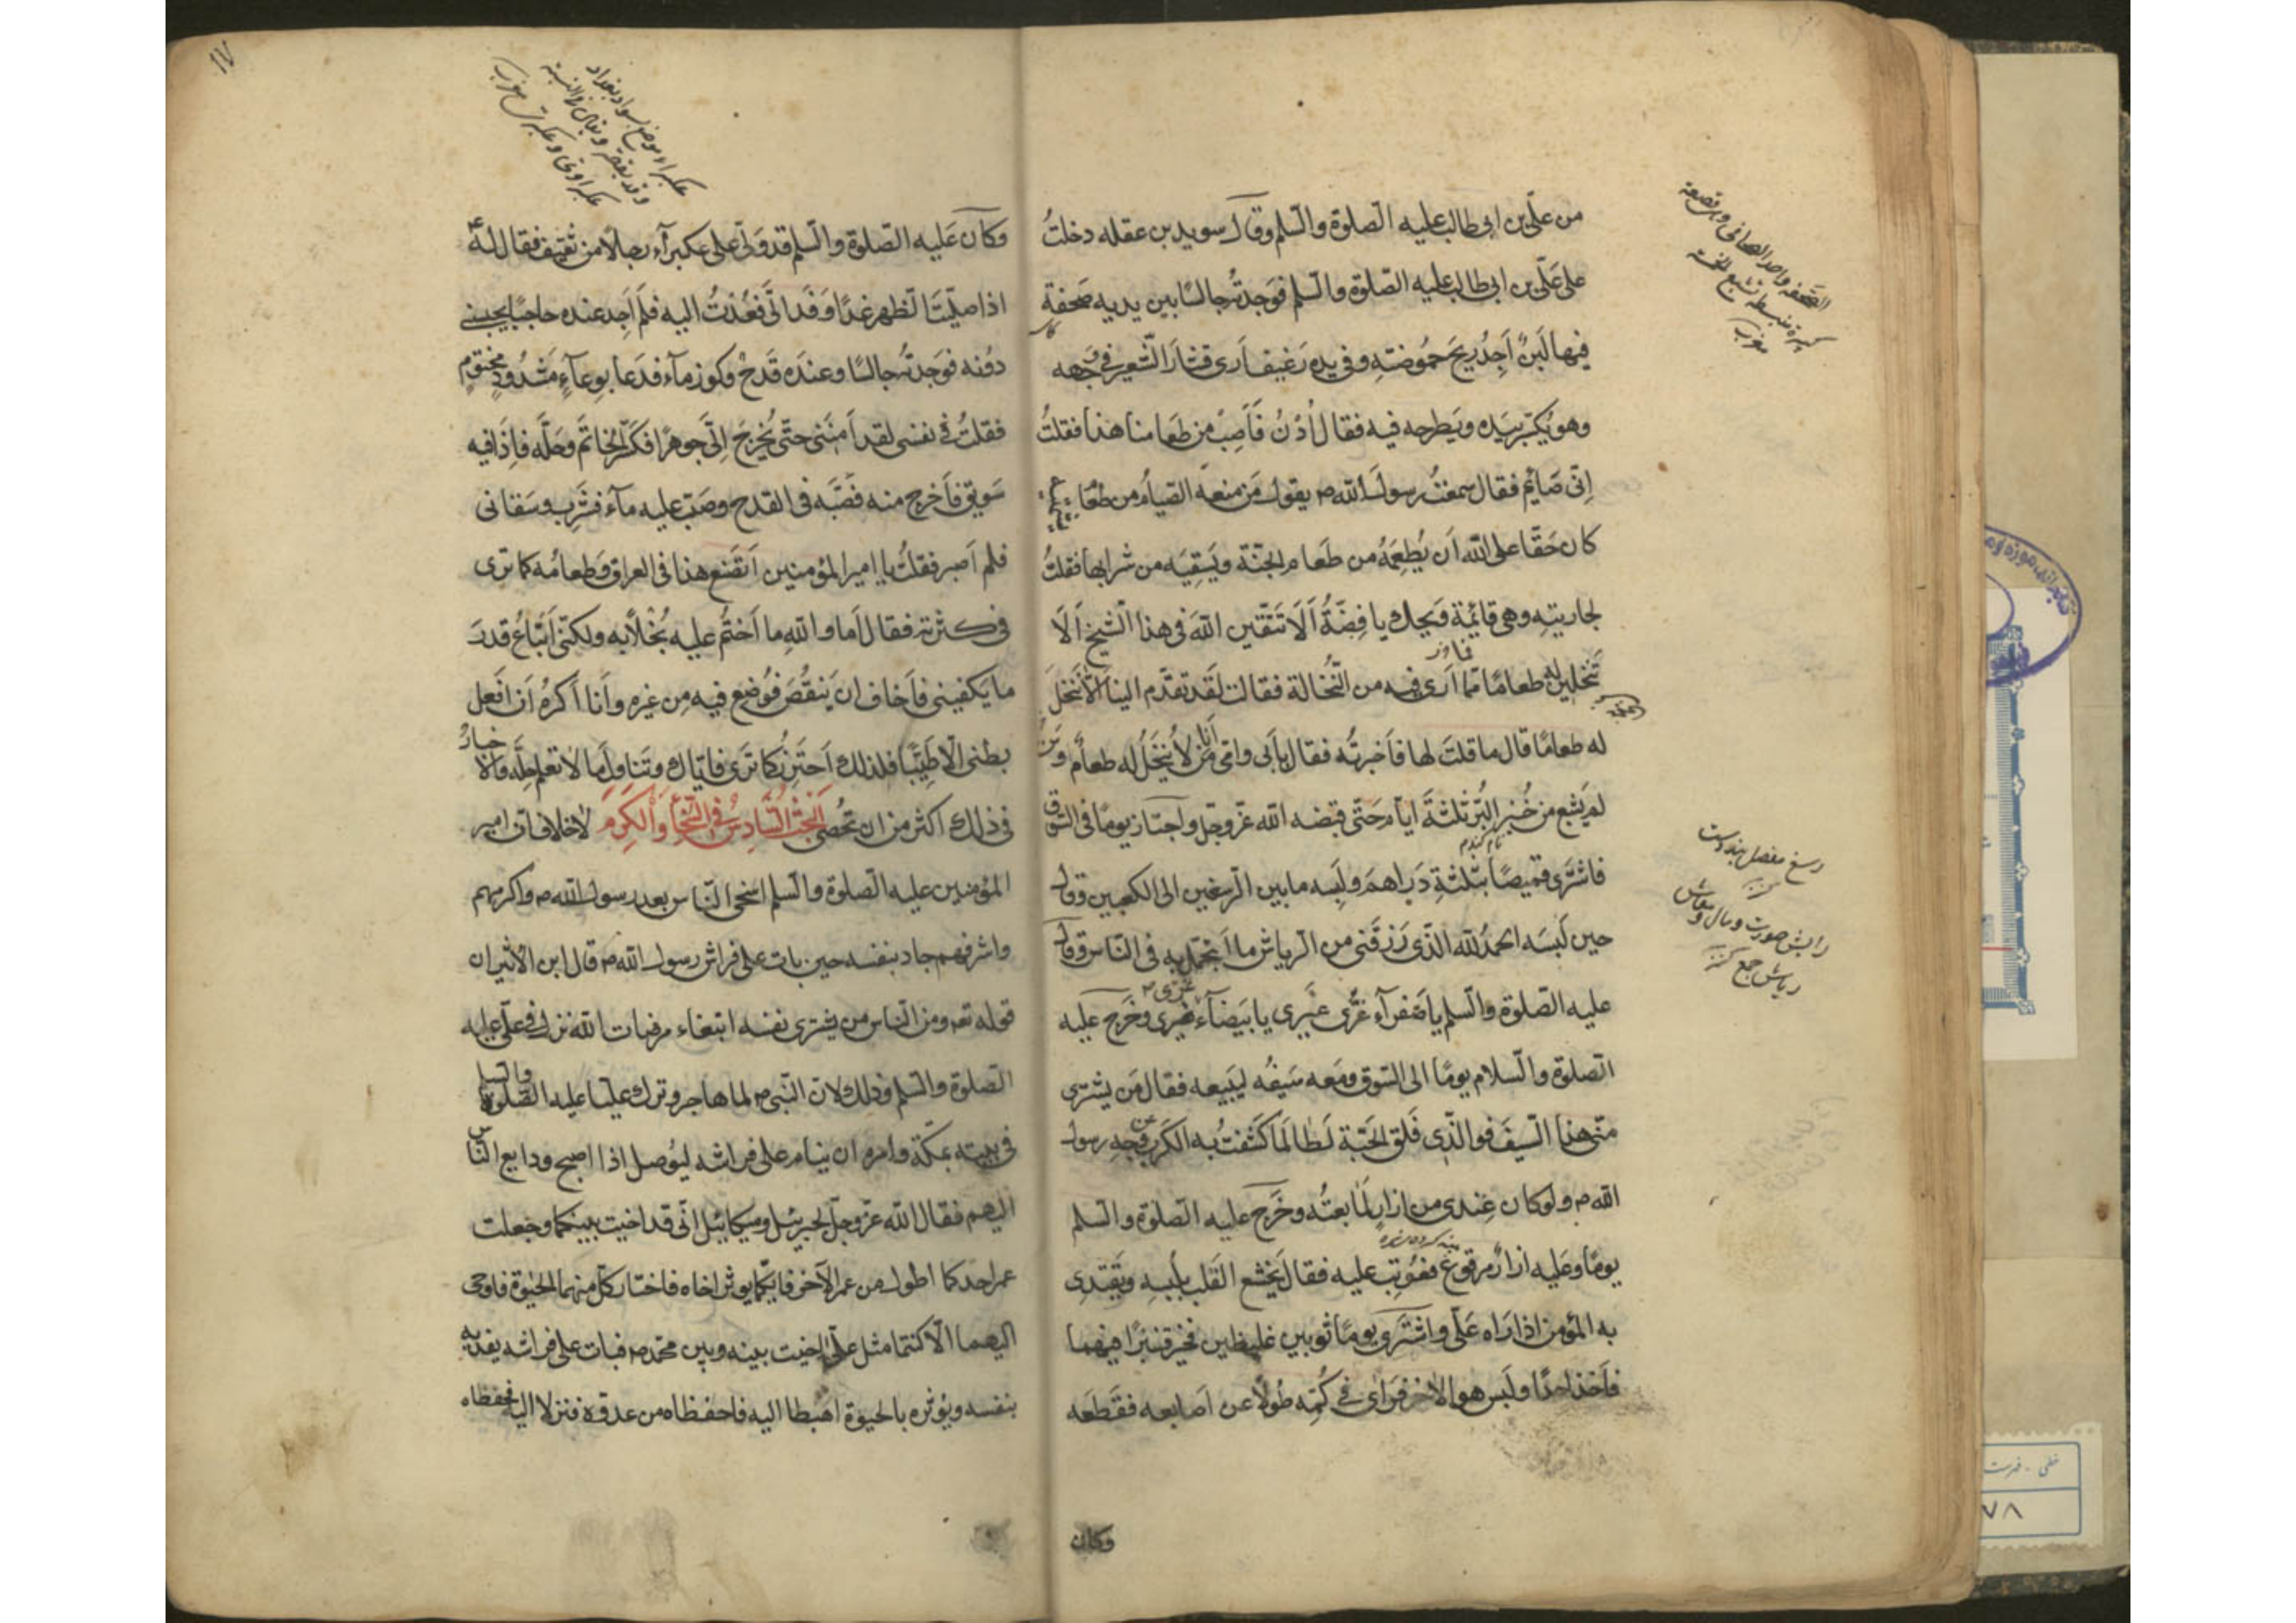 من علی بن ابی طالب علیه الصلوة والسلم وقال سوید بن عقله دخلتُ
علی علی بن ابی طالب علیه الصلوة والسلم فوجدتُه جالسًا بین یدیه صحفة
فیها لبنٌ اَجِدُ ریحَ حموُضتِهِ وفی یده رَغیف اَری قشارَ الشعیر فی وجهه
وهو یکسّر بیَده ویَطرحه فیه فقال اُدْنُ فَاَصِبْ من طعَامنا هذا فقلتُ
اِنّی صَائِم فقال سمعتُ رسول الله ص یقول مَن منعَه الصیامُ من طعَام
کان حَقّا علی الله اَن یُطعِمَهُ من طَعام الجنّة ویَسقِیَه من شرابها فقلتُ
لجاریتِه وهی قائِمة وَیحك یا فِضّةُ اَلَا تتّقین اللهَ فی هذا الشیخ اَلَا
تَنخلین له طعامًا ممّا اَری فیه من النُّخالة فقالت لقَد تقدّم الینا اَلّا نَنخلَ
له طعامًا قال ما قلتَ لها فاَخبرتُه فقال بابی وامّی مَن لا یُنخَلُ له طعامٌ ومَن
لم یَشبع من خُبز البُرّ ثلثةَ ایّام حَتّی قبَضه الله عزّ وجلّ واجتاز یومًا فی السّوق
فاشترَی قمیصًا بثلثةِ دَرَاهمَ ولَبِسه ما بین الرسغین الی الکعبین وقال
حین لَبسَه الحمدُ لله الذّی رَزقَنی من الرّیاش ما اَتجمّل به فی النّاس وقال
علیه الصّلوة والسّلم یا صَفرآء غُرّی غَیری یا بَیضآء غُرّی غَیری وخَرج علیه
الصلوة والسّلام یومًا الی السّوق ومَعه سَیفُه لیَبیعه فقال مَن یشتری
منّی هذا السّیفَ فوالذّی فَلق الحَبّة لَطا لَما کشَفتُ به الکربَ عن وَجهِ رسول
الله ص ولو کان عِندی من ازارٍ لَمَا بعتُه وخَرَج علیه الصّلوة والسّلم
یومًا وعَلیه ازارٌ مَرقوعٌ فعُوتِبَ علیه فقال یَخشع القَلب بلُبسِهِ ویَقتدِی
به المؤمن اذا رَاه عَلیّ واشترَی یومًا ثوبین غلیظین فخیّر قنبرًا فیهما
فاَخذ واحدًا ولَبس هو الاخر فرَأی فی کُمّه طُولًا عن اَصابعه فقَطَعَه
وکان
الصحفة واحد الصحاف وهی قصعة
کبیرة منبسطة تشبع الخمسة
مغرب
نام گندم
رسغ مفصل بند دست
رایش صورت ومال ومعاش
ریاش جمع
۱۷
عکبراء موضع بسواد بغداد
وقد یقصر ویقال فی النسبة
عکبراوی وعکبری مغرب
وکان عَلیه الصّلوة والسّلم قد وَلّی علی عکبرآء رجلًا من ثقیف فقال له
اذا صلّیتَ الظهر غدًا وَفَدا اِلَیَّ فعُدتُ الیه فلم اَجد عنده حاجبًا یحبسنی
دوُنه فوَجدتُه جالسًا وعندَه قَدَحٌ وکوز مآء فدَعا بوِعآءٍ مَشدُودٍ مختوم
فقلتُ فی نفسی لقد اَمِنَنی حتّی یُخرِجَ اِلیّ جوهرًا فکسَر الخاتم وحَلّه فاِذا فیه
سَویق فاَخرج منه فصَبّه فی القدح وصَبّ علیه مآء فشَرِب وسَقانی
فلم اَصبر فقلتُ یا امیر المؤمنین اَتَصنع هذا فی العراق وطعامُه کما تری
فی کثرته فقال اَما والله ما اَختُم علیه بُخلًا به ولکنّی اَبتاعُ قدرَ
ما یَکفینی فاَخاف ان یَنقُصَ فیُوضع فیه مِن غیره وانا اَکرهُ اَن اَدخل
بطنی الّا طیّبًا فلذلك اَحترزُ کما تَری فایّاك وتناوُلَ ما لا تعلم حِلّه والاخبارُ
فی ذلك اکثر من ان تُحصی البحَث السّادِسُ فی السَّخاءِ وَالکَرَمِ لا خلاف انّ امیر
المؤمنین علیه الصّلوة والسّلم اسخی النّاس بعد رسول الله ص واکرمهم
واشرفهم جاد بنفسه حین بات علی فراش رسول الله ص قال ابن الاثیر ان
قوله تعه ومن الناس من یشتری نفسه ابتغاء مرضات الله نزل فی علیّ علیه
الصلوة والسّلم وذلك لان النّبی ص لما هاجر وترك علیا علیه الصّلوة والسلم
فی بیته بمکّة وامره ان ینام علی فراشه لیُوصل اذا اصبح ودایع النّاس
الیهم فقال الله عزّ وجلّ لجبرئیل ومیکائیل انّی قد اخیت بینکما وجعلت
عمر احدکما اطول من عمر الآخر فایّکما یوثر اخاه فاختار کلّ منهما الحیوة فاوحی
الیهما الا کنتما مثل علیّ اخیت بینه وبین محمّد ص فبات علی فراشه یفدیه
بنفسه ویُوثره بالحیوة اهبطا الیه فاحفظاه من عدوّه فنزلا الیه فحفظاه
خطی - فهرست
۷۸